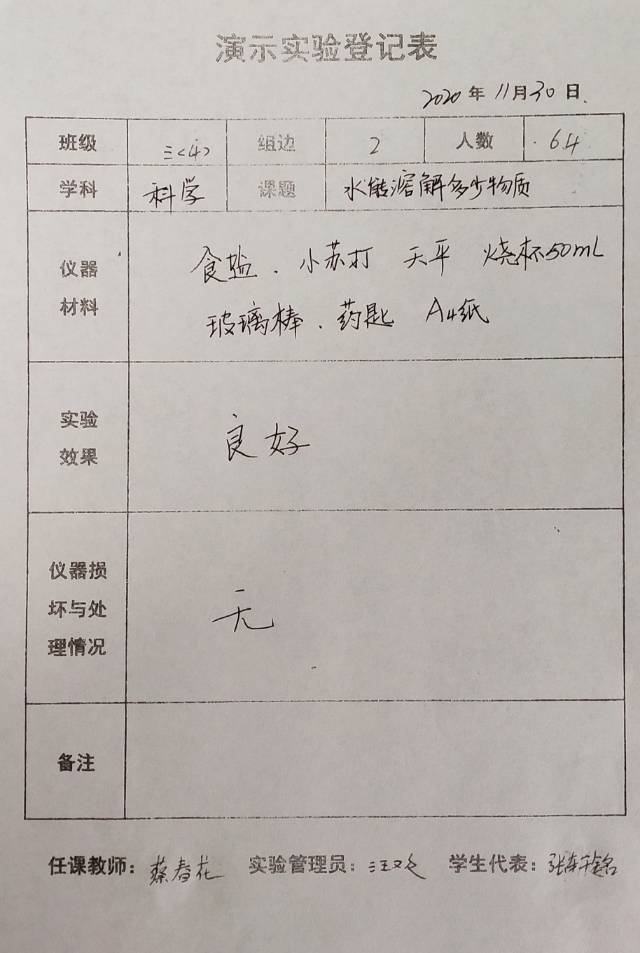 演示实验登记表
2020年11月30日
班级 三<4> 组边 2 人数 64
学科 科学 课题 水能溶解多少物质
仪器材料 食盐、小苏打 天平 烧杯50mL
玻璃棒、药匙 A4纸
实验效果 良好
仪器损坏与处理情况 无
备注
任课教师：蔡春花 实验管理员：汪 学生代表：张